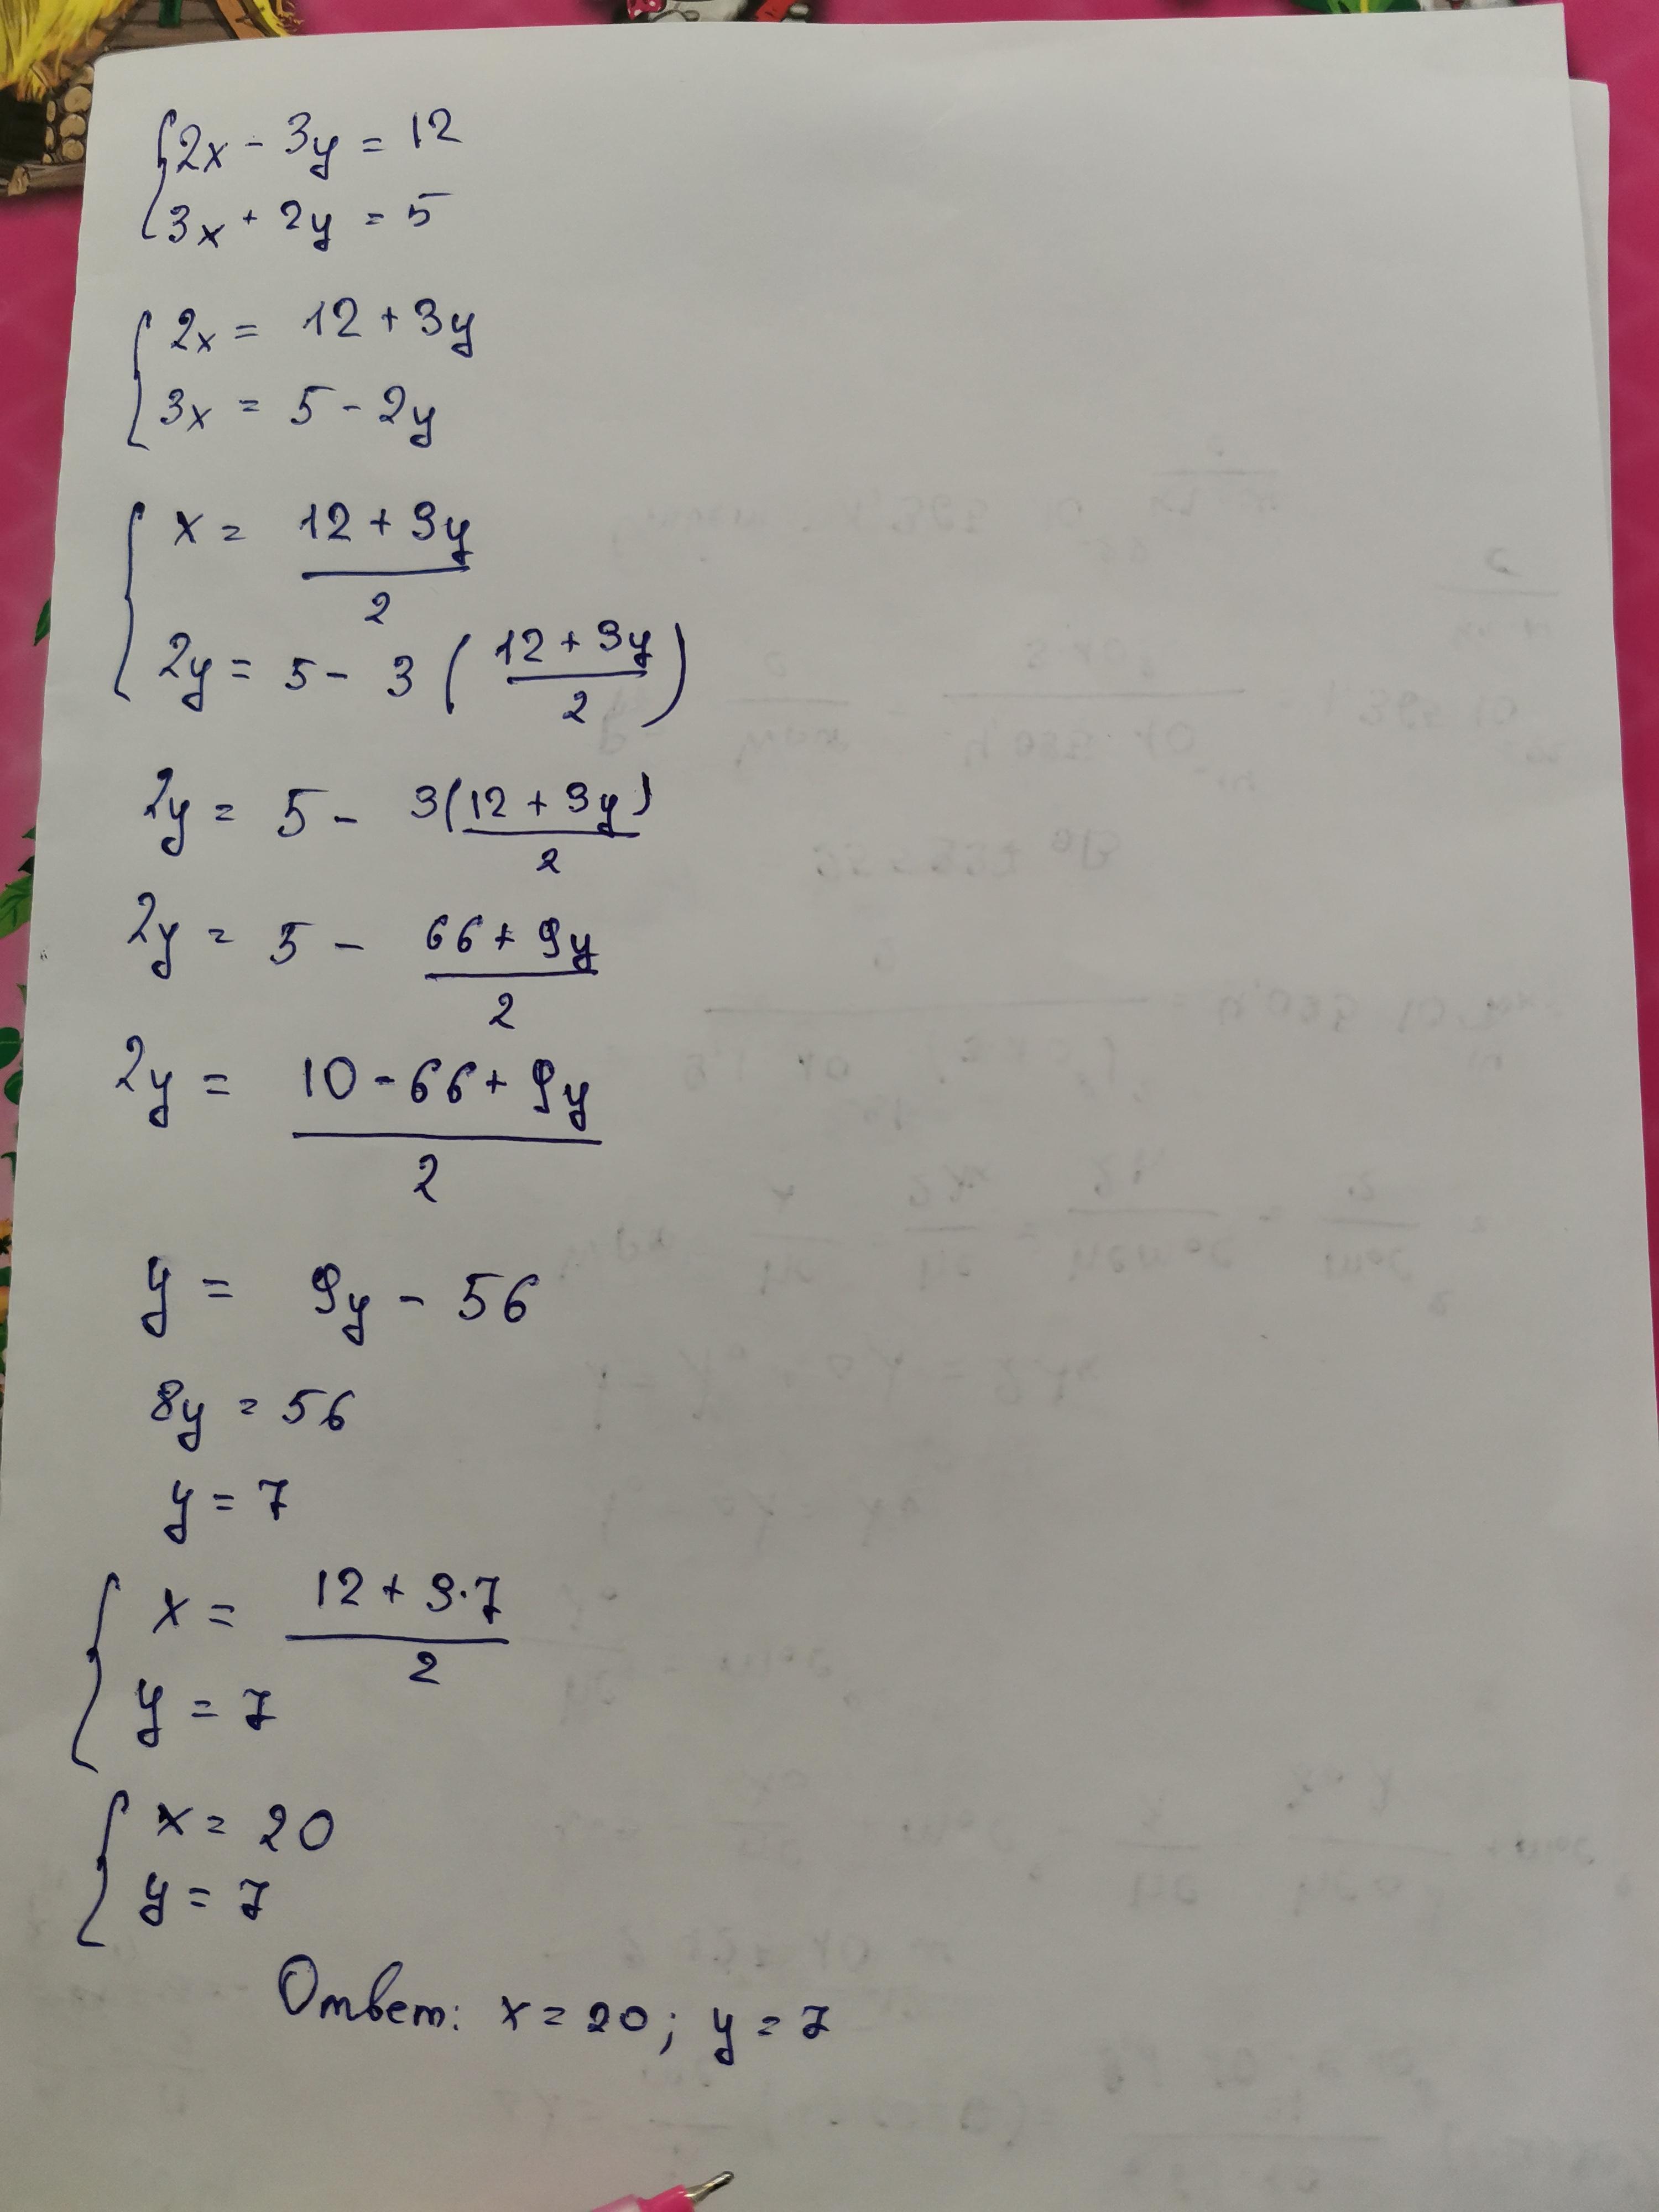 2x - 3y = 12
3x + 2y = 5
2x = 12 + 3y
3x = 5 - 2y
x = (12 + 3y)/2
2y = 5 - 3((12 + 3y)/2)
2y = 5 - 3(12 + 3y)/2
2y = 5 - (66 + 9y)/2
2y = (10 - 66 + 9y)/2
y = 9y - 56
8y = 56
y = 7
x = (12 + 3·7)/2
y = 7
x = 20
y = 7
Ответ: x = 20; y = 7